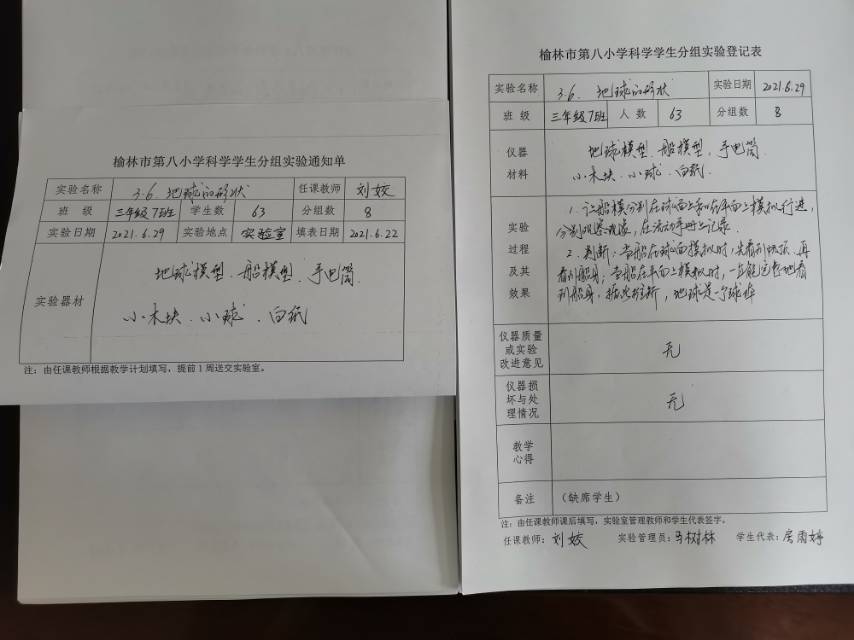 榆林市第八小学科学学生分组实验通知单
实验名称 3.6. 地球的形状 任课教师 刘姣
班级 三年级7班 学生数 63 分组数 8
实验日期 2021.6.29 实验地点 实验室 填表日期 2021.6.22
实验器材 地球模型、船模型、手电筒
小木块、小球、白纸
注:由任课教师根据教学计划填写,提前1周送交实验室。
榆林市第八小学科学学生分组实验登记表
实验名称 3.6. 地球的形状 实验日期 2021.6.29
班级 三年级7班 人数 63 分组数 8
仪器材料 地球模型、船模型、手电筒
小木块、小球、白纸
实验过程及其效果 1. 让船模分别在球面上和在平面上模拟行进,
分别观察现象,在活动手册上记录.
2. 判断:当船在球面模拟时,先看到帆顶,再
看到船身,当船在平面上模拟时,一直能完整地看
到船身,据此推断,地球是一个球体
仪器质量或实验改进意见 无
仪器损坏与处理情况 无
教学心得
备注 (缺席学生)
注:由任课教师课后填写,实验室管理教师和学生代表签字。
任课教师:刘姣 实验管理员:马树林 学生代表:雨婷